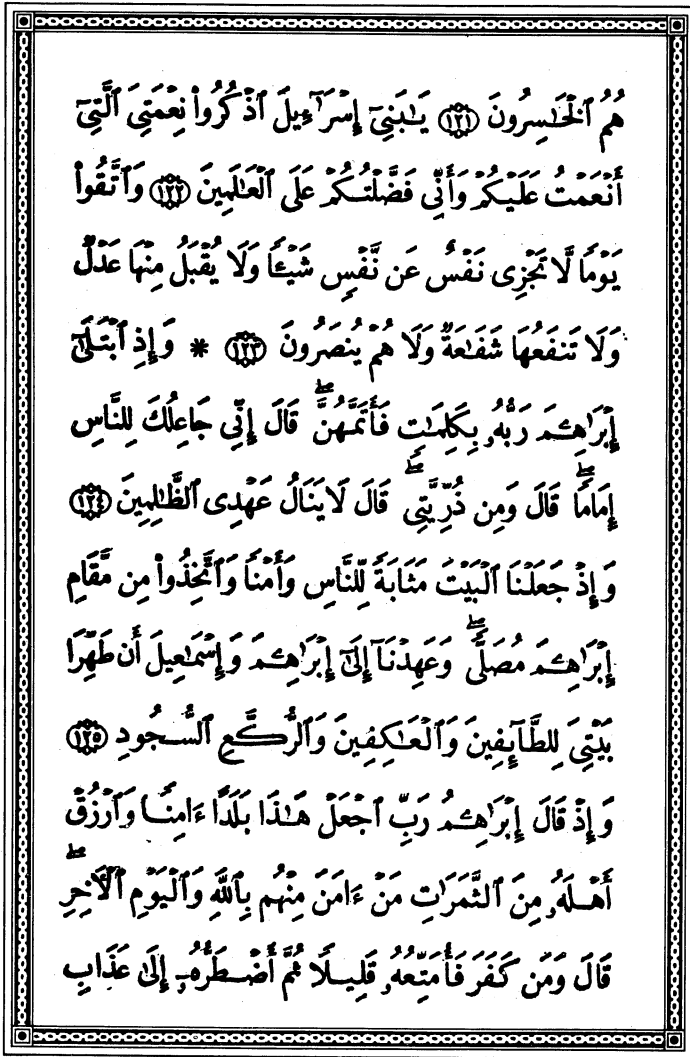 هُمُ ٱلْخَـٰسِرُونَ ١٢١ يَـٰبَنِىٓ إِسْرَٰٓءِيلَ ٱذْكُرُوا۟ نِعْمَتِىَ ٱلَّتِىٓ
أَنْعَمْتُ عَلَيْكُمْ وَأَنِّى فَضَّلْتُكُمْ عَلَى ٱلْعَـٰلَمِينَ ١٢٢ وَٱتَّقُوا۟
يَوْمًا لَّا تَجْزِى نَفْسٌ عَن نَّفْسٍ شَيْـًٔا وَلَا يُقْبَلُ مِنْهَا عَدْلٌ
وَلَا تَنفَعُهَا شَفَـٰعَةٌ وَلَا هُمْ يُنصَرُونَ ١٢٣ * وَإِذِ ٱبْتَلَىٰٓ
إِبْرَٰهِـۧمَ رَبُّهُۥ بِكَلِمَـٰتٍ فَأَتَمَّهُنَّ ۖ قَالَ إِنِّى جَاعِلُكَ لِلنَّاسِ
إِمَامًا ۖ قَالَ وَمِن ذُرِّيَّتِى ۖ قَالَ لَا يَنَالُ عَهْدِى ٱلظَّـٰلِمِينَ ١٢٤
وَإِذْ جَعَلْنَا ٱلْبَيْتَ مَثَابَةً لِّلنَّاسِ وَأَمْنًا وَٱتَّخِذُوا۟ مِن مَّقَامِ
إِبْرَٰهِـۧمَ مُصَلًّى ۖ وَعَهِدْنَآ إِلَىٰٓ إِبْرَٰهِـۧمَ وَإِسْمَـٰعِيلَ أَن طَهِّرَا
بَيْتِىَ لِلطَّآئِفِينَ وَٱلْعَـٰكِفِينَ وَٱلرُّكَّعِ ٱلسُّجُودِ ١٢٥
وَإِذْ قَالَ إِبْرَٰهِـۧمُ رَبِّ ٱجْعَلْ هَـٰذَا بَلَدًا ءَامِنًا وَٱرْزُقْ
أَهْلَهُۥ مِنَ ٱلثَّمَرَٰتِ مَنْ ءَامَنَ مِنْهُم بِٱللَّهِ وَٱلْيَوْمِ ٱلْـَٔاخِرِ ۖ
قَالَ وَمَن كَفَرَ فَأُمَتِّعُهُۥ قَلِيلًا ثُمَّ أَضْطَرُّهُۥٓ إِلَىٰ عَذَابِ